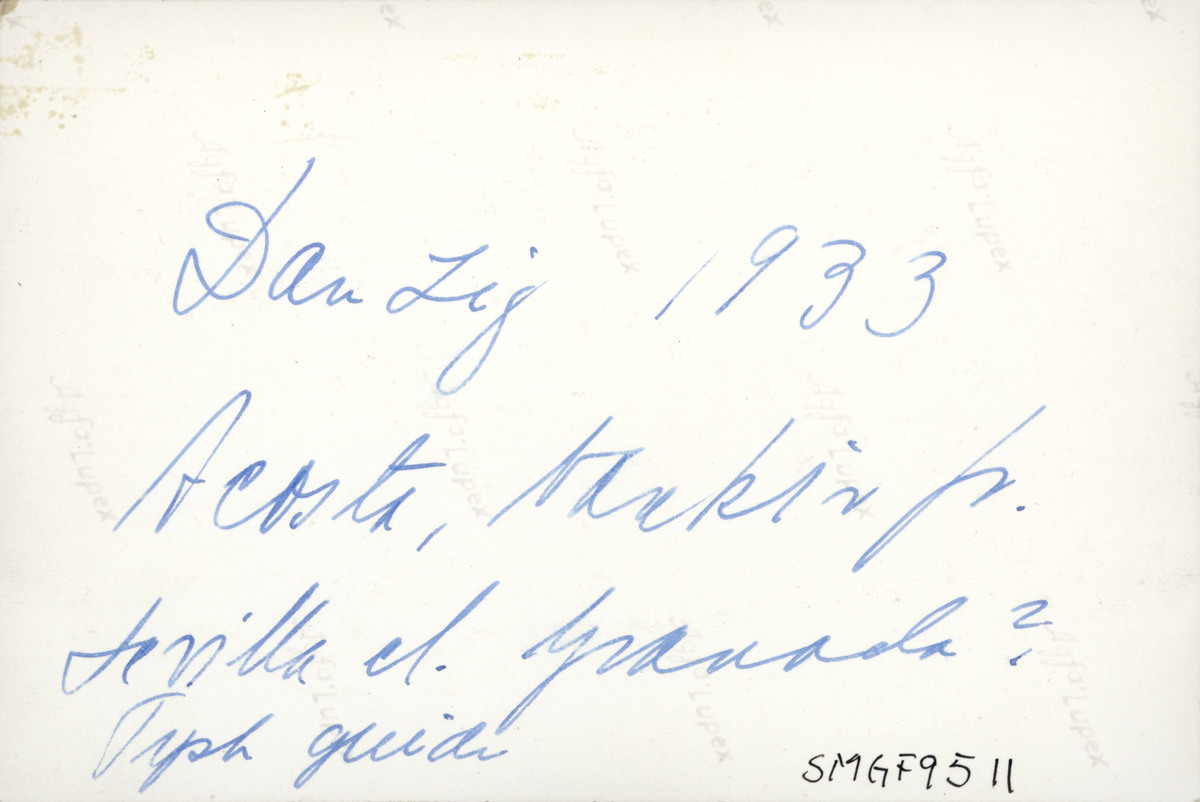 Danzig 1933
Acosta, fr.
Sevilla el. Granada?
Tysk guide
SMGF9511
Agfa:Lupex